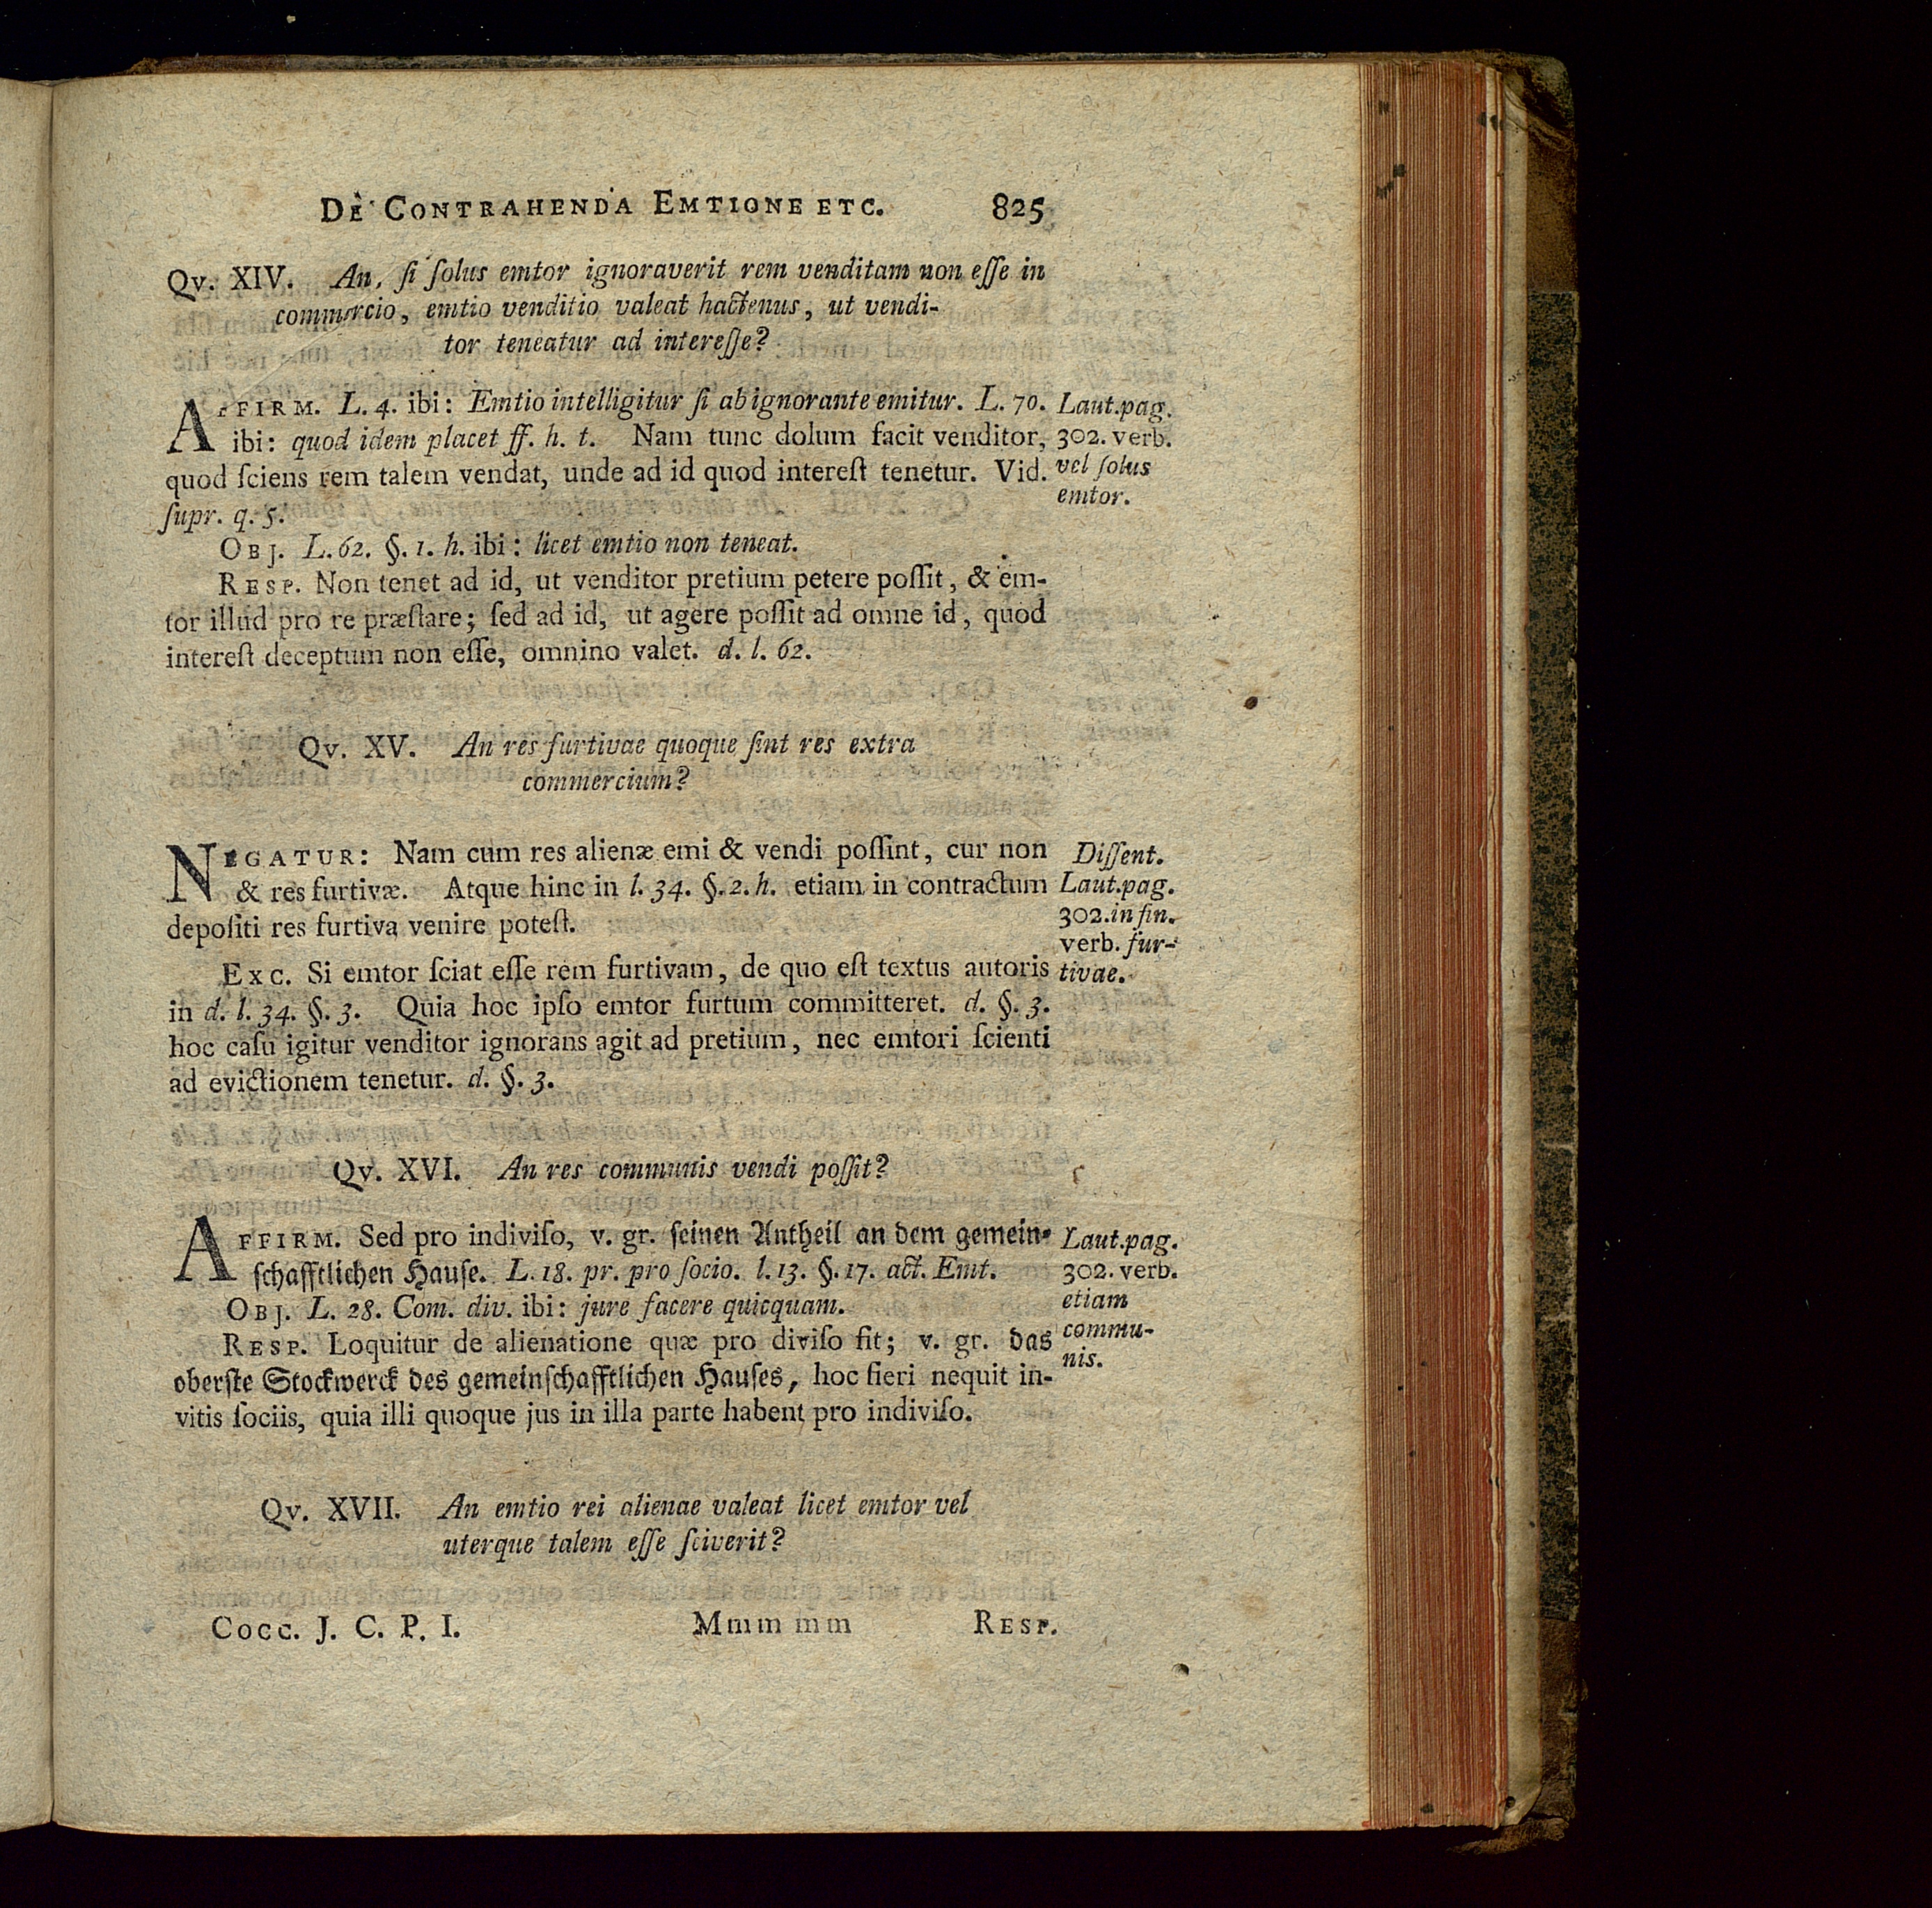 DE CONTRAHENDA EMTIONE ETC. 825
Qv. XIV. An, ſi ſolus emtor ignoraverit rem venditam non eſſe in
commercio, emtio venditio valeat hactenus, ut vendi-
tor teneatur ad intereſſe?
AFFIRM. L. 4. ibi: Emtio intelligitur ſi ab ignorante emitur. L. 70.
ibi: quod idem placet ff. h. t. Nam tunc dolum facit venditor,
quod ſciens rem talem vendat, unde ad id quod intereſt tenetur. Vid.
ſupr. q. 5.
Laut. pag.
302. verb.
vel ſolus
emtor.
OBJ. L. 62. §. 1. h. ibi: licet emtio non teneat.
RESP. Non tenet ad id, ut venditor pretium petere poſſit, & em-
tor illud pro re præſtare; ſed ad id, ut agere poſſit ad omne id, quod
intereſt deceptum non eſſe, omnino valet. d. l. 62.
Qv. XV. An res furtivae quoque ſint res extra
commercium?
NEGATUR: Nam cum res alienæ emi & vendi poſſint, cur non
& res furtivæ. Atque hinc in l. 34. §. 2. h. etiam in contractum
depoſiti res furtiva venire poteſt.
Diſſent.
Laut. pag.
302. in fin.
verb. fur-
tivae.
EXC. Si emtor ſciat eſſe rem furtivam, de quo eſt textus autoris
in d. l. 34. §. 3. Quia hoc ipſo emtor furtum committeret. d. §. 3.
hoc caſu igitur venditor ignorans agit ad pretium, nec emtori ſcienti
ad evictionem tenetur. d. §. 3.
Qv. XVI. An res communis vendi poſſit?
AFFIRM. Sed pro indiviſo, v. gr. ſeinen Antheil an dem gemein-
ſchafftlichen Hauſe. L. 18. pr. pro ſocio. l. 13. §. 17. act. Emt.
Laut. pag.
302. verb.
etiam
commu-
nis.
OBJ. L. 28. Com. div. ibi: jure facere quicquam.
RESP. Loquitur de alienatione quæ pro diviſo fit; v. gr. das
oberſte Stockwerck des gemeinſchafftlichen Hauſes, hoc fieri nequit in-
vitis ſociis, quia illi quoque jus in illa parte habent pro indiviſo.
Qv. XVII. An emtio rei alienae valeat licet emtor vel
uterque talem eſſe ſciverit?
Cocc. J. C. P. I. Mmm mm RESP.